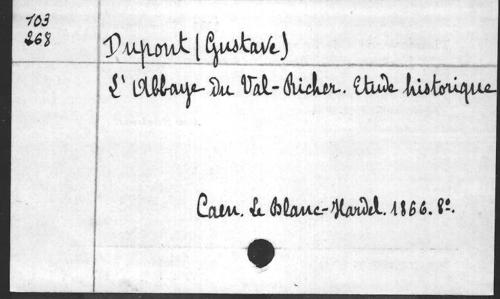 103
268
Dupont (Gustave)
L'Abbaye du Val-Richer. Etude historique
Caen. Le Blanc-Hardel. 1866. 8º.